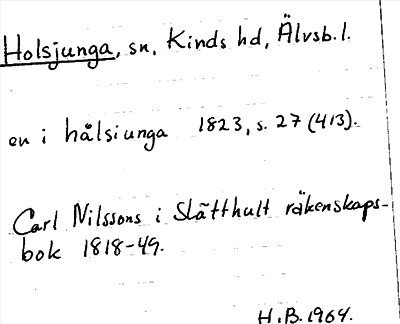 Holsjunga, sn, Kinds hd, Älvsb. l.
en i hålsiunga 1823, s. 27 (413).
Carl Nilssons i Slätthult räkenskaps-
bok 1818-49.
H.B. 1964.